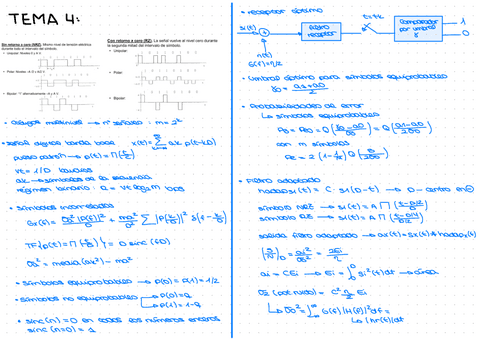 TEMA 4:
Sin retorno a cero (NRZ). Mismo nivel de tensión eléctrica
durante todo el intervalo de símbolo.
• Unipolar: Niveles 0 y A V.
• Polar: Niveles -A (0 ) A(1) V
• Bipolar: "1" alternativamente -A y A V
Con retorno a cero (RZ). La señal vuelve al nivel cero durante
la segunda mitad del intervalo de símbolo.
• Unipolar:
• Polar:
• Bipolar:
• códigos multinivel → nº señales : m = 2^k
• señal digital banda base x(t) = Σ ak p(t-kD)
pulso patrón → p(t) = Π(t/D)
vt = 1/D baudios
ak → símbolos de la secuencia
régimen binario : R = vt log2 m bps
• símbolos incorrelados
Gx(f) = σa² |P(f)|²/D + ma²/D² Σ |P(k/D)|² δ(f - k/D)
TF{p(t) = Π(t/D)} = D sinc (fD)
σa² = media(ak²) - ma²
• símbolos equiprobables → p(0) = p(1) = 1/2
• símbolos no equiprobables → p(0) = Q
→ p(1) = 1-Q
• sinc(n) = 0 en todos los números enteros
sinc(n=0) = 1
• receptor óptimo
si(t)
filtro
receptor
t = tk
Comparador
por umbral
γ
1
0
n(t)
G(f) = η/2
• Umbral óptimo para símbolos equiprobables
γ0 = (a1 + a0)/2
• Probabilidades de error
↳ símbolos equiprobables
con m símbolos
• Filtro adaptado
hadap(t) = C · si(D-t) → D - centro en
símbolo NRZ → si(t) = A Π
símbolo RZ → si(t) = A Π
salida filtro adaptado → ao(t) = sx(t) * hadap(t)
(S/N)D = ai²/σ0² = 2Ei/η
ai = CEi → Ei = ∫ si²(t) dt → área
σ0² (pot ruido) = C² η/2 Ei
↳ σ0² = ∫ G(f) |H(f)|² df =
↳ ∫hr(t)dt